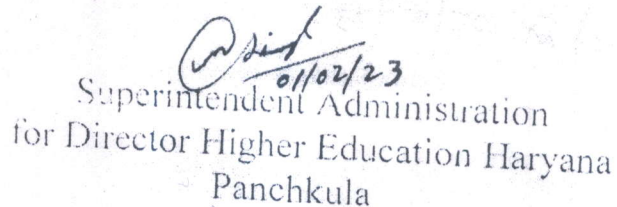 01/02/23
Superintendent Administration
for Director Higher Education Haryana
Panchkula